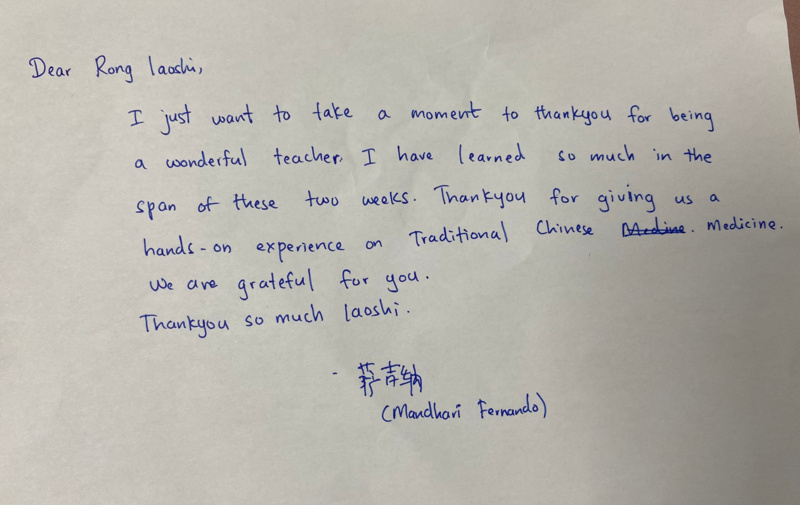 Dear Rong laoshi,
I just want to take a moment to thankyou for being
a wonderful teacher. I have learned so much in the
span of these two weeks. Thankyou for giving us a
hands-on experience on Traditional Chinese Medine. Medicine.
We are grateful for you.
Thankyou so much laoshi.
- 吉纳
(Mandhari Fernando)